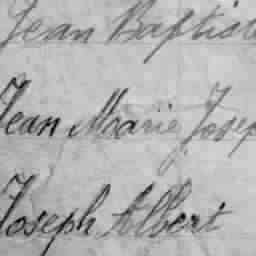 Jean Baptiste
Jean Marie Josep
Joseph Albert